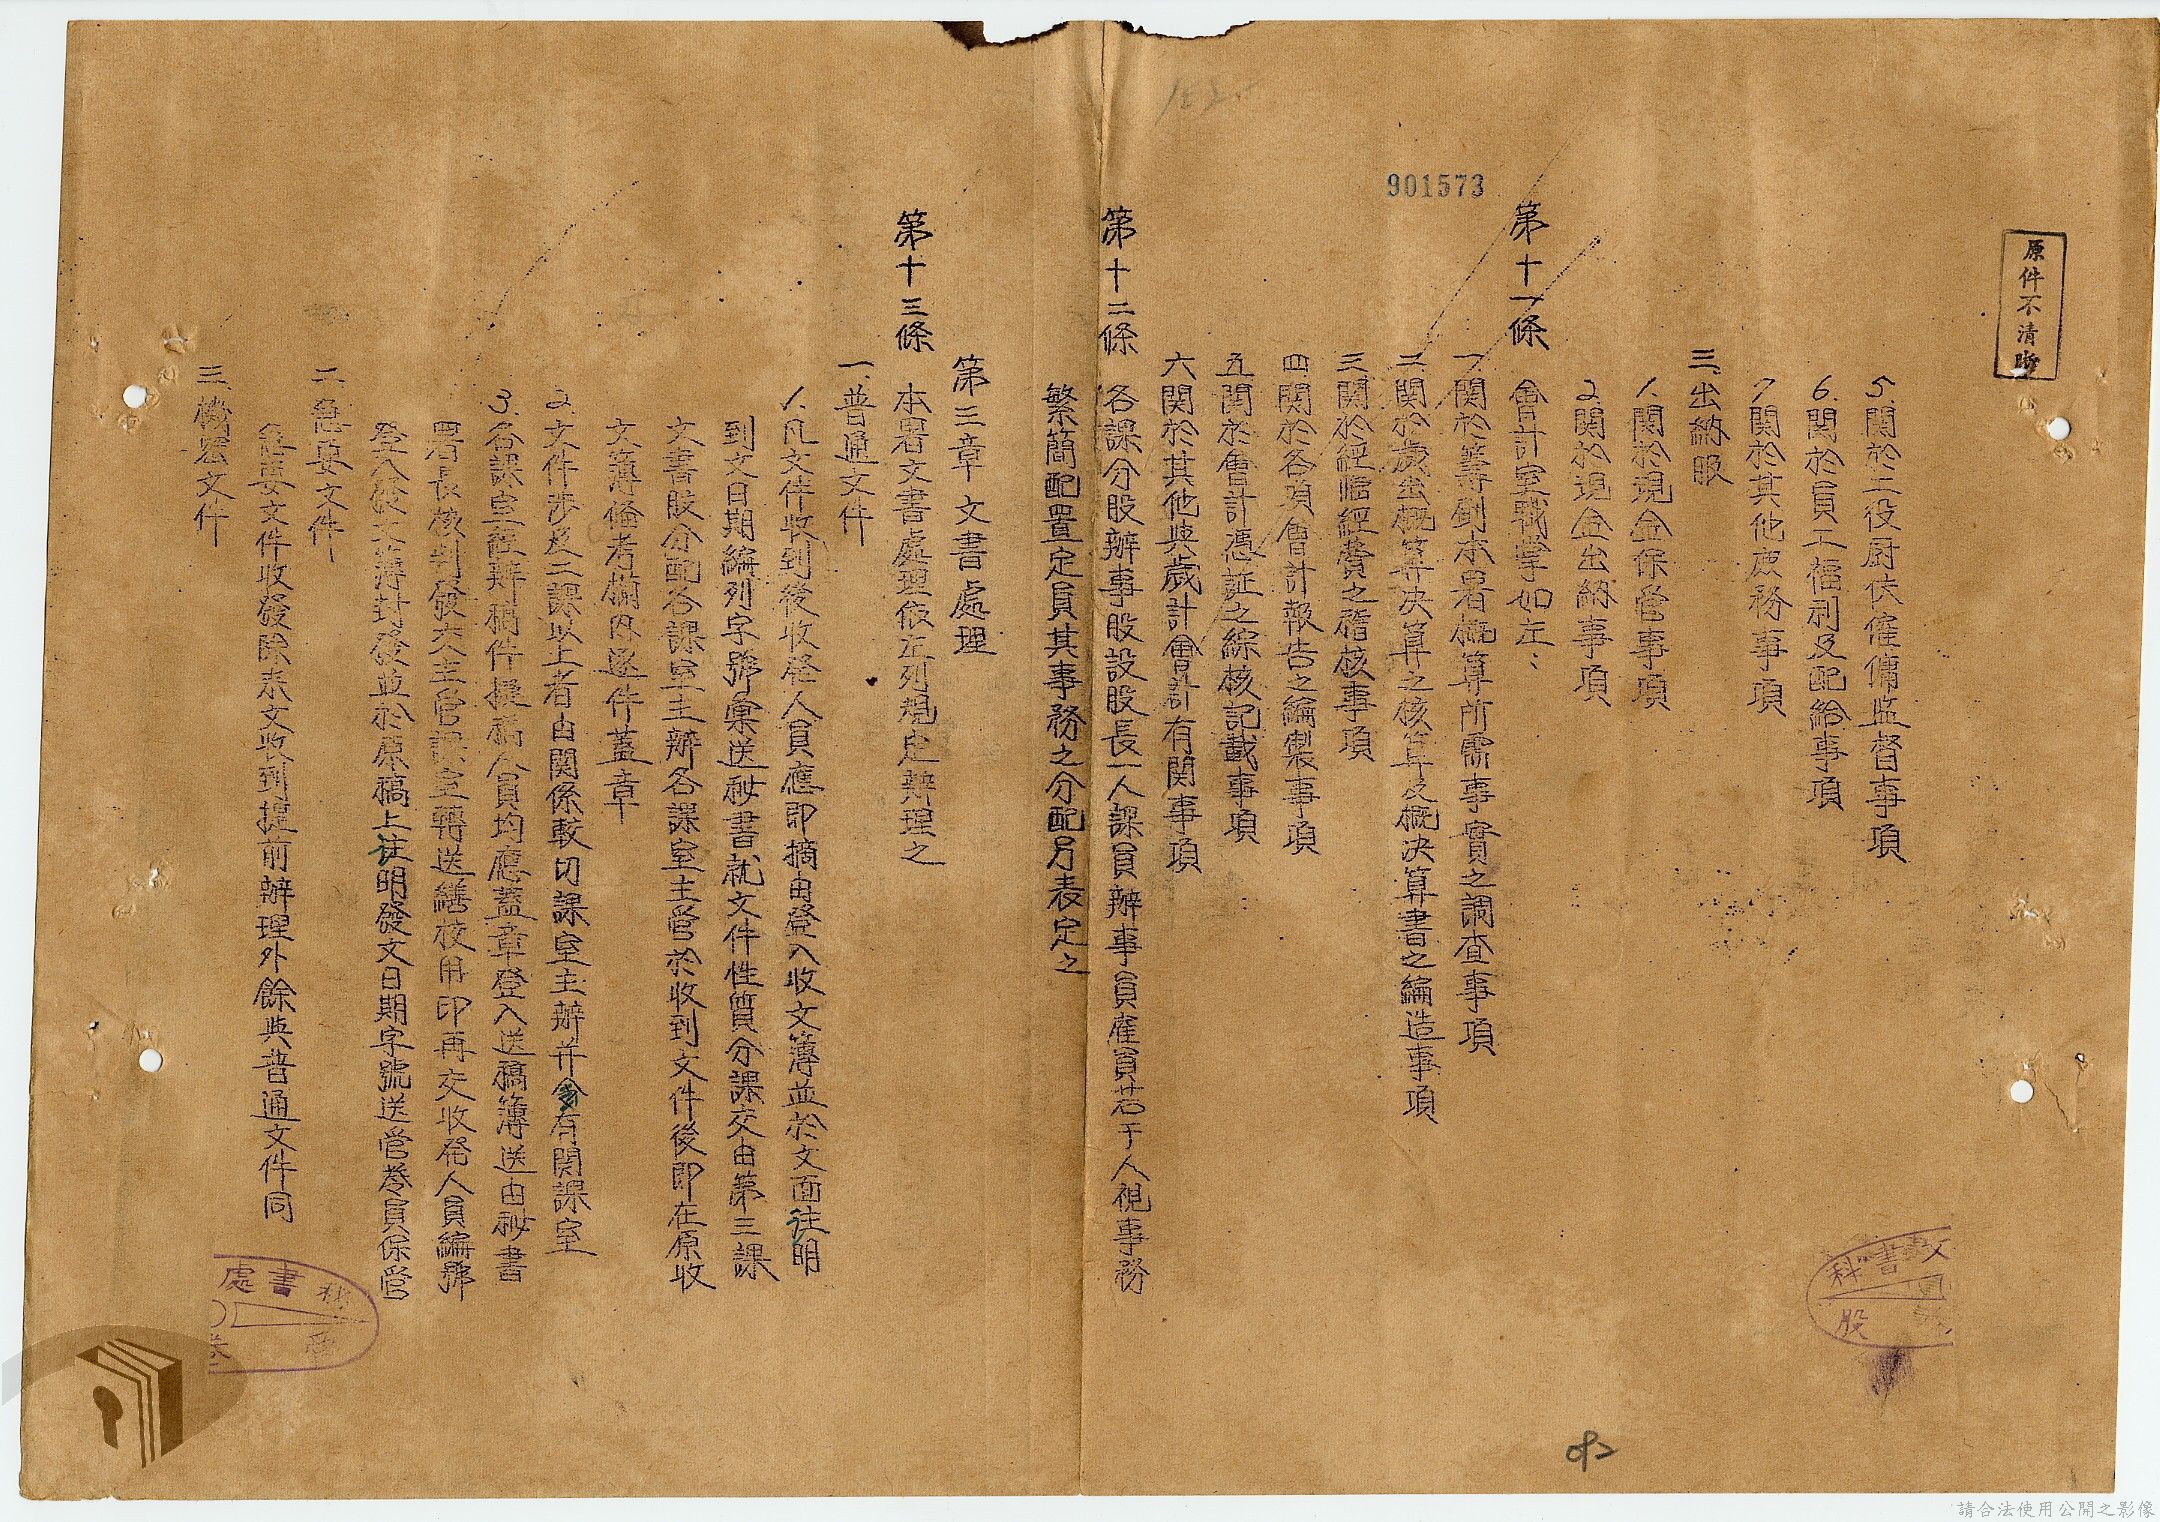 原件不清晰
901573
5.關於工役厨伕僱傭监督事項
6.関於員工福利及配給事項
7.関於其他庶務事項
三.出納股
1.関於現金保管事項
2.関於現金出納事項
第十一條 會計室職掌如左：
一.関於籌劃本署概算所需事實之調查事項
二.関於歲出概算决算之核算及概决算書之編造事項
三.関於經臨經費之稽核事項
四.関於各項會計報告之編製事項
五.関於會計憑証之綜核記載事項
六.関於其他與歲計會計有関事項
第十二條 各課分股辦事股設股長一人課員辦事員雇員若干人視事務
繁簡配置定員其事務之分配另表定之
第三章 文書處理
第十三條 本署文書處理依左列規定辦理之
一.普通文件
1.凡文件收到後收发人員應即摘由登入收文簿並於文面注明
到文日期編列字號彙送秘書就文件性質分課交由第三課
文書股分配各課室主辦各課室主管於收到文件後即在原收
文簿俻考欄内逐件蓋章
2.文件涉及二課以上者由関係較切課室主辦并會有関課室
3.各課室經辦稿件擬稿人員均應蓋章登入送稿簿送由秘書
署長核判發交主管課室轉送繕校用印再交收发人員編號
登入發文簿封發並於原稿上注明發文日期字號送管卷員保管
二.急要文件
急要文件收發除來文收到提前辦理外餘與普通文件同
三.機密文件
文書科
股
秘書處
請合法使用公開之影像